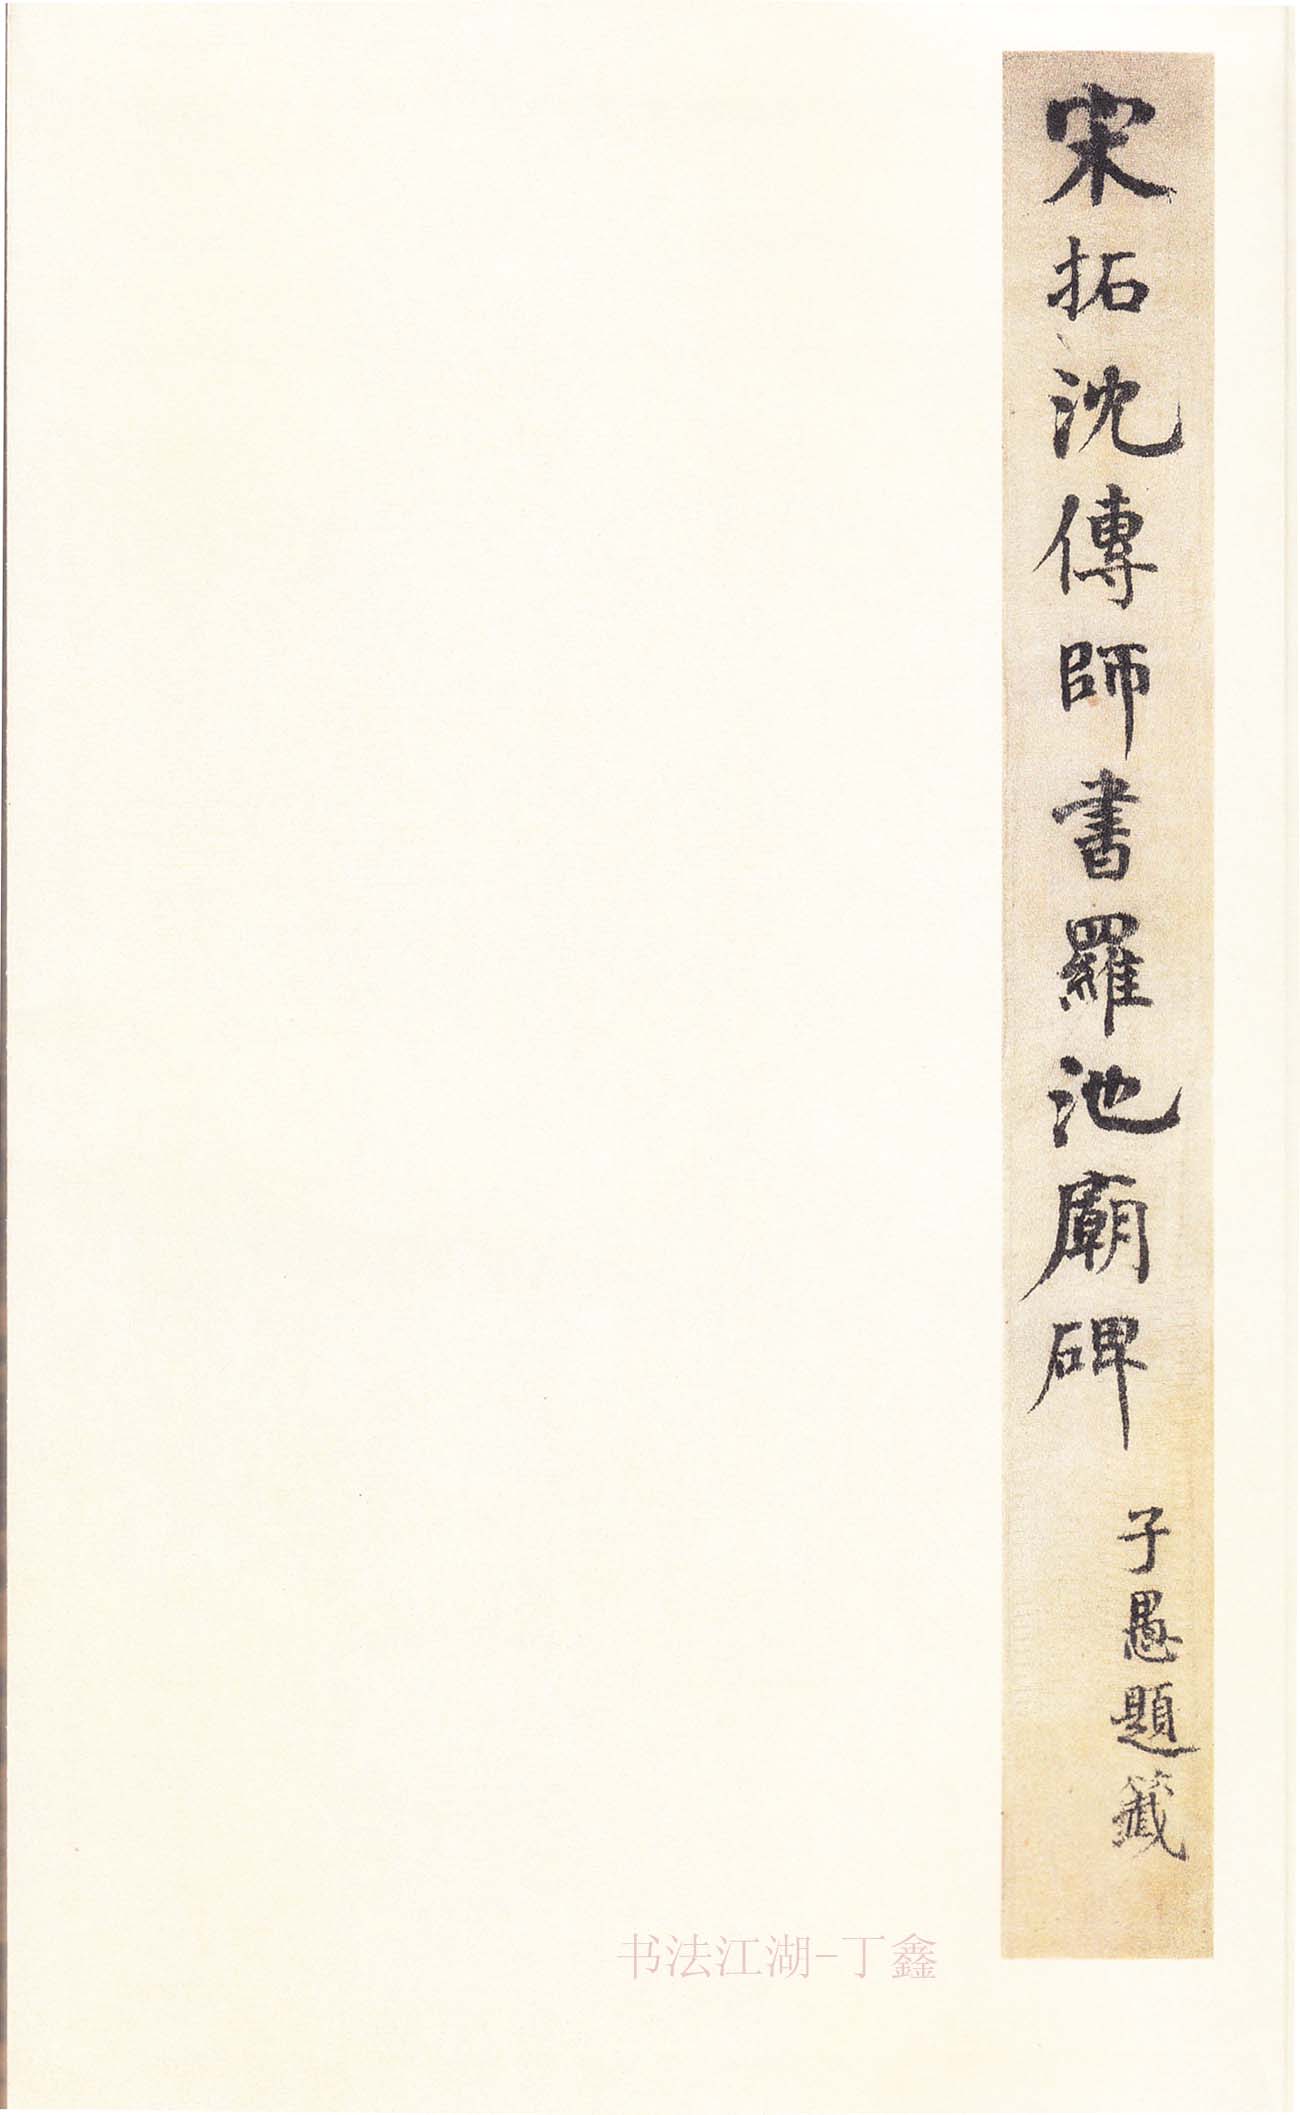 宋拓沈傳師書羅池廟碑
子愚題籤
书法江湖-丁鑫